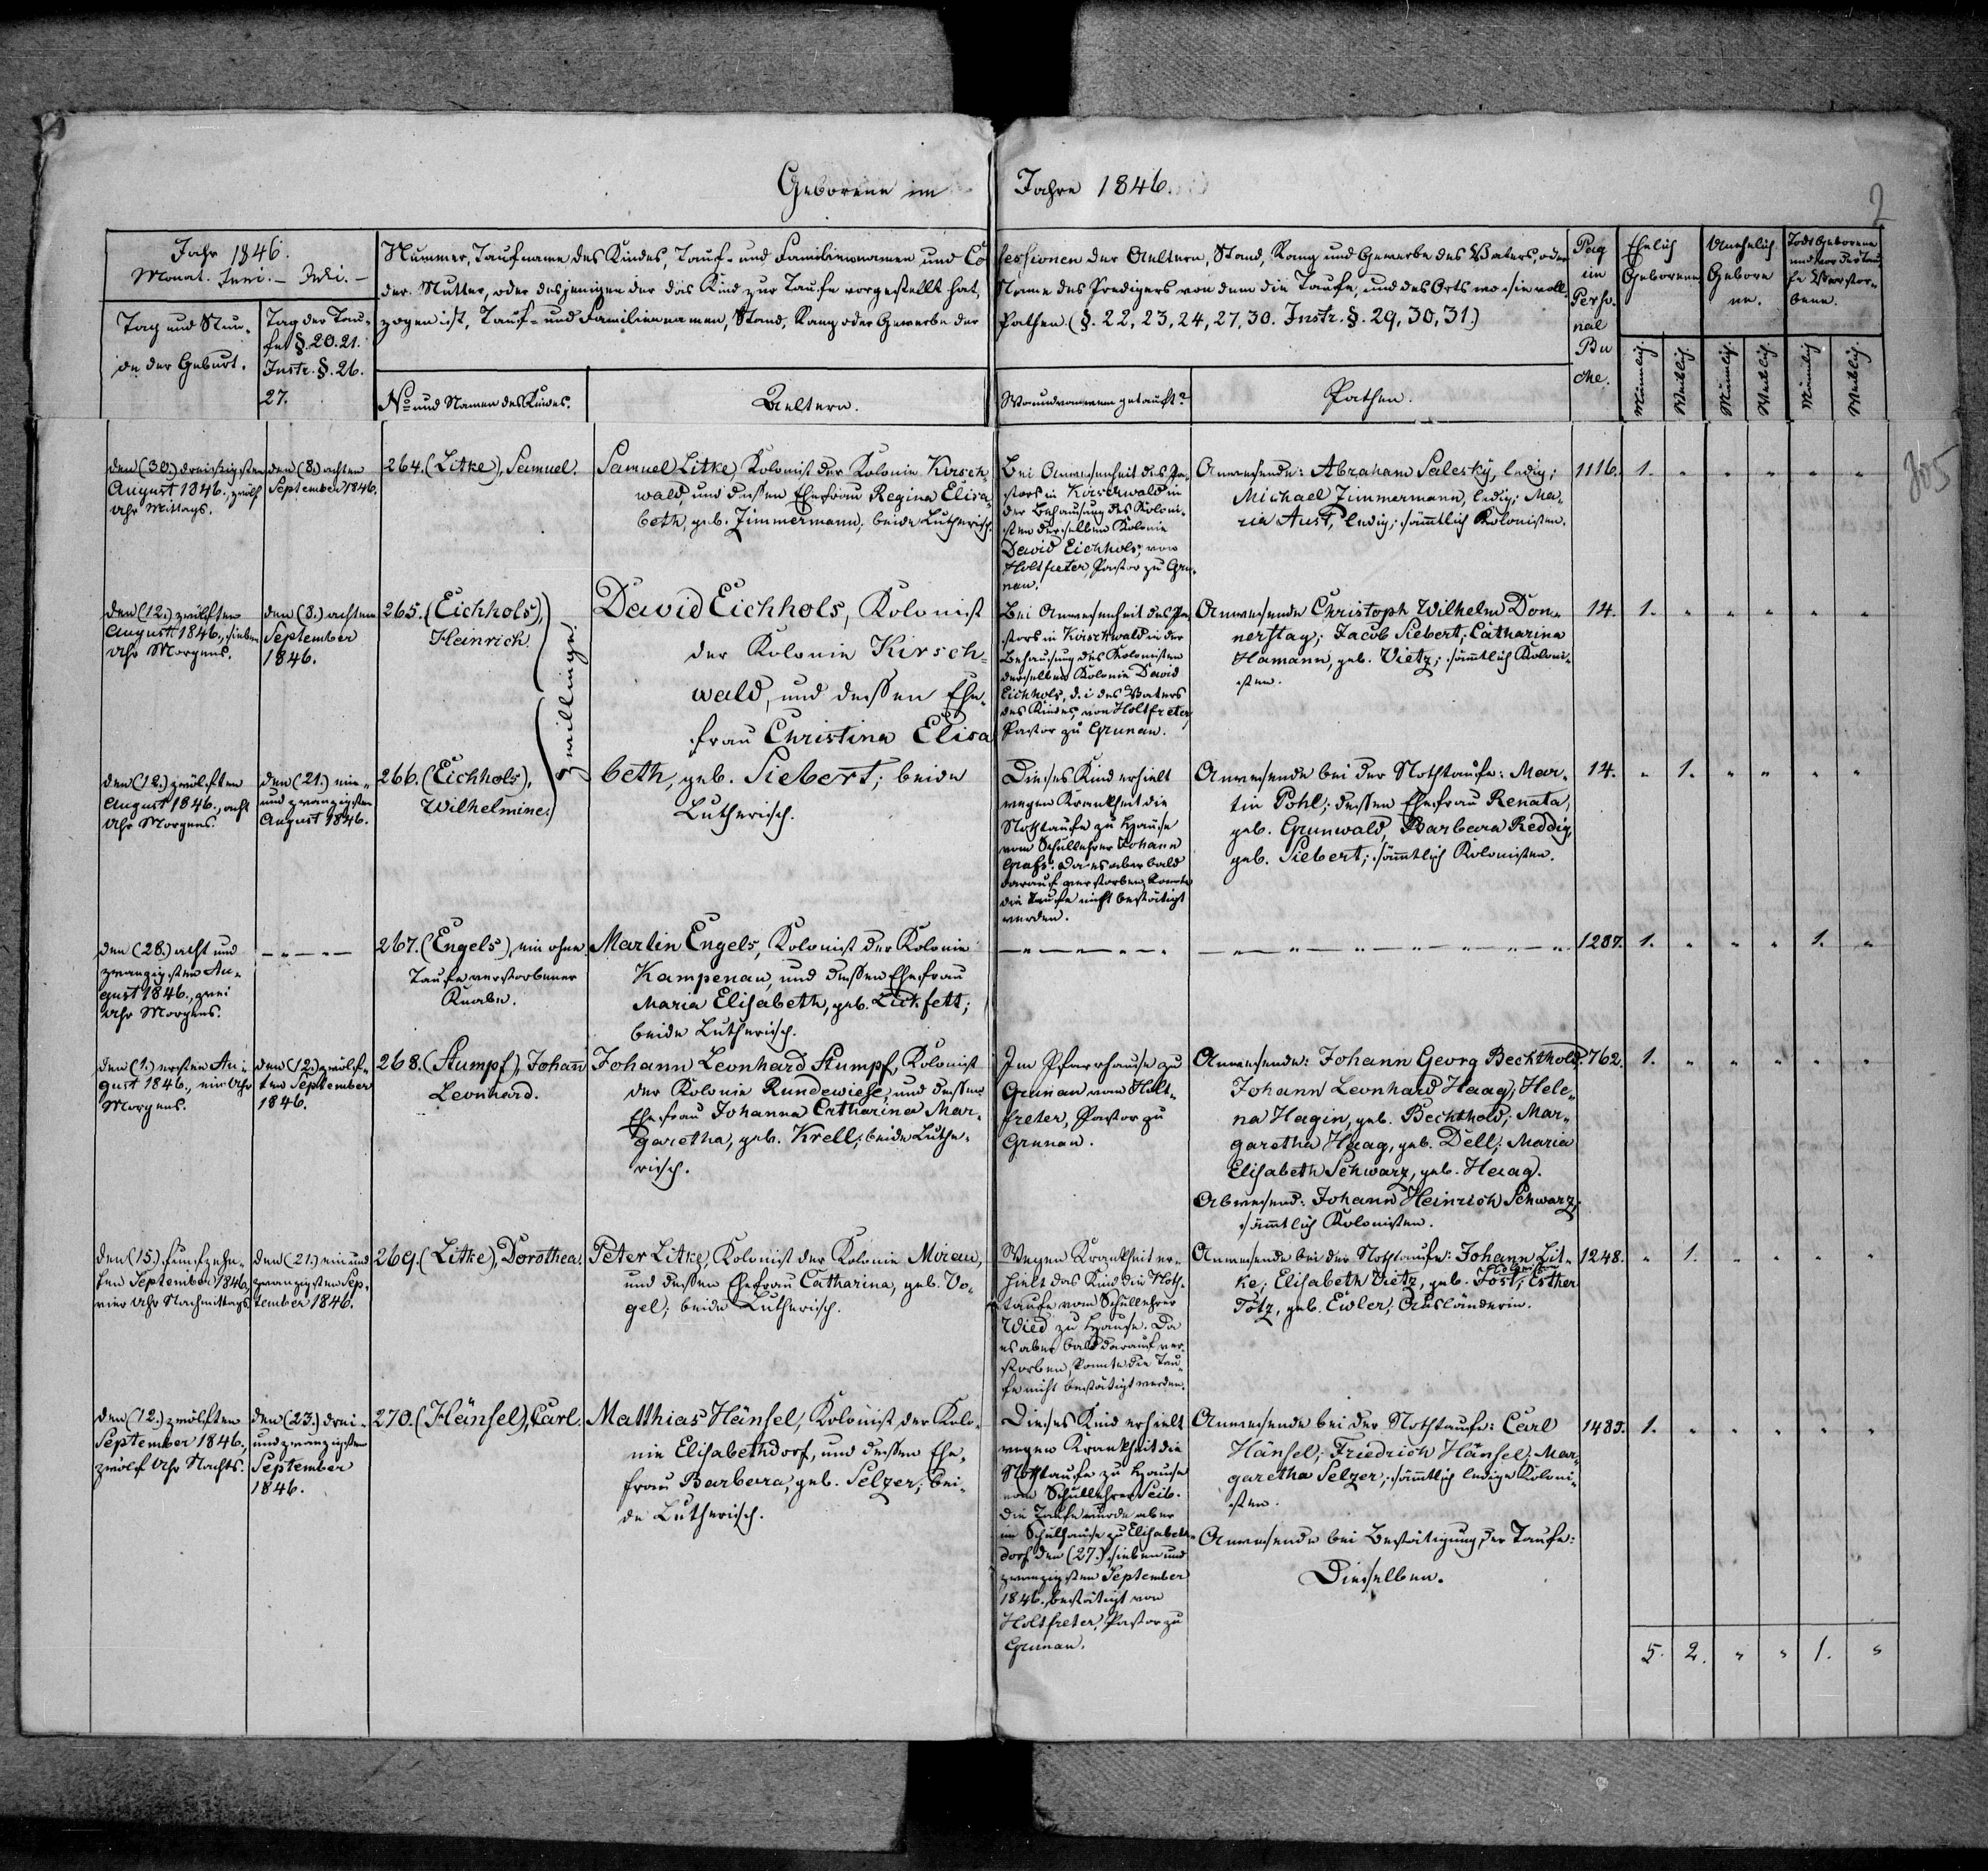 Geborene im Jahre 1846.
2
305
Jahr 1846.
Monat. Juni. – Juli. –
Tag und Stun-
de der Geburt.
Tag der Tau-
fe §. 20. 21.
Instr. §. 26.
27.
Nummer, Taufname des Kindes, Tauf- und Familiennamen und Co
der Mutter, oder desjenigen der das Kind zur Taufe vorgestellt hat,
zogen ist, Tauf- und Familiennamen, Stand, Rang oder Gewerbe der
No und Namen des Kindes.
Aeltern.
fessionen der Aeltern, Stand, Rang und Gewerbe des Vaters, oder
Name des Predigers von dem die Taufe, und des Orts wo sie voll-
Pathen (§. 22, 23, 24, 27, 30. Instr. §. 29, 30, 31.)
Wo und von wem getauft?
Pathen.
Pag
im
Perso-
nal
Bu
che.
Ehelich
Geborene
Unehelich
Gebore
ne.
Todt Geborene
und vor der Tau-
fe Verstor-
bene.
Männlich.
Weiblich.
Männlich.
Weiblich.
Männlich
Weiblich.
den (30.) dreißigsten
August 1846., zwölf
Uhr Mittags.
den (8.) achten
September 1846.
264. (Litke), Samuel.
Samuel Litke, Kolonist der Kolonie Kirsch-
wald, und dessen Ehefrau Regina Elisa-
beth, geb. Zimmermann, beide Lutherisch.
Bei Anwesenheit des Pa-
stors in Kirschwald in
der Behausung des Koloni-
sten derselben Kolonie
David Eichhols, von
Holtfreter, Pastor zu Gru-
nau.
Anwesende: Abraham Salesky, ledig;
Michael Zimmermann, ledig; Ma-
ria Aust, ledig; sämtlich Kolonisten.
1116. 1. " " " " "
den (12.) zwölften
August 1846., sieben
Uhr Morgens.
den (8.) achten
September
1846.
265. (Eichhols),
Heinrich.
Zwillinge.
David Eichhols, Kolonist
der Kolonie Kirsch-
wald, und dessen Ehe-
frau Christina Elisa
beth, geb. Siebert; beide
Lutherisch.
Bei Anwesenheit des Pa-
stors in Kirschwald in der
Behausung des Kolonisten
derselben Kolonie David
Eichhols, d. i. des Vaters
des Kindes, von Holtfreter,
Pastor zu Grunau.
Anwesende Christoph Wilhelm Don-
nerstag; Jacob Siebert; Catharina
Hamann, geb. Vietz; sämtlich Koloni-
sten.
14. 1. " " " " "
den (12.) zwölften
August 1846., acht
Uhr Morgens.
den (21.) ein-
und zwanzigsten
August 1846.
266. (Eichhols),
Wilhelmine.
Dieses Kind erhielt
wegen Krankheit die
Nothtaufe zu Hause
vom Schullehrer Johann
Grafs. Da es aber bald
darauf verstorben, konnte
die Taufe nicht bestätigt
werden.
Anwesende bei der Nothtaufe: Mar-
tin Pohl; dessen Ehefrau Renata,
geb. Grunwald; Barbara Reddig,
geb. Siebert; sämtlich Kolonisten.
14. " 1. " " " "
den (28.) acht und
zwanzigsten Au-
gust 1846., zwei
Uhr Morgens.
– " – " –
267. (Engels), ein ohne
Taufe verstorbener
Knabe.
Martin Engels, Kolonist der Kolonie
Kampenau, und dessen Ehefrau
Maria Elisabeth, geb. Lickfett;
beide Lutherisch.
1287. 1. " " " 1. "
den (1.) ersten Au-
gust 1846., ein Uhr
Morgens.
den (12.) zwölf-
ten September
1846.
268. (Stumpf), Johann
Leonhard.
Johann Leonhard Stumpf, Kolonist
der Kolonie Rundewiese, und dessen
Ehefrau Johanna Catharina Mar-
garetha, geb. Krell; beide Luthe-
risch.
Im Pfarrhause zu
Grunau vom Holt-
freter, Pastor zu
Grunau.
Anwesende: Johann Georg Bechthold;
Johann Leonhard Haag; Hele-
na Hagin, geb. Bechthold; Mar-
garetha Haag, geb. Dell; Maria
Elisabeth Schwarz, geb. Haag.
Abwesend: Johann Heinrich Schwarz;
sämtlich Kolonisten.
762. 1. " " " " "
den (15.) funfzehn-
ten September 1846.,
vier Uhr Nachmittags
den (21.) ein und
zwanzigsten Sep-
tember 1846.
269. (Litke), Dorothea.
Peter Litke, Kolonist der Kolonie Mirau,
und dessen Ehefrau Catharina, geb. Vo-
gel; beide Lutherisch.
Wegen Krankheit er-
hielt das Kind die Noth-
taufe vom Schullehrer
Wied zu Hause. Da
es aber bald darauf ver-
storben, konnte die Tau-
fe nicht bestätigt werden.
Anwesende bei der Nothtaufe: Johann Lit-
ke; Elisabeth Vietz, geb. Jost; Esther
Totz, geb. Ewler; Ausländerin.
1248. " 1. " " " "
den (12.) zwölften
September 1846.,
zwölf Uhr Nachts.
den (23.) drei-
und zwanzigsten
September
1846.
270. (Hänsel), Carl.
Matthias Hänsel, Kolonist der Kolo-
nie Elisabethdorf, und dessen Ehe-
frau Barbara, geb. Selzer; bei-
de Lutherisch.
Dieses Kind erhielt
wegen Krankheit die
Nothtaufe zu Hause
vom Schullehrer Seib.
Die Taufe wurde aber
im Schulhause zu Elisabeth-
dorf den (27.) sieben und
zwanzigsten September
1846., bestätigt von
Holtfreter, Pastor zu
Grunau.
Anwesende bei der Nothtaufe: Carl
Hänsel; Friedrich Hänsel; Mar-
garetha Selzer; sämtlich ledige Koloni-
sten.
Anwesende bei Bestätigung der Taufe:
Dieselben.
1485. 1. " " " " "
5. 2. " " 1. "